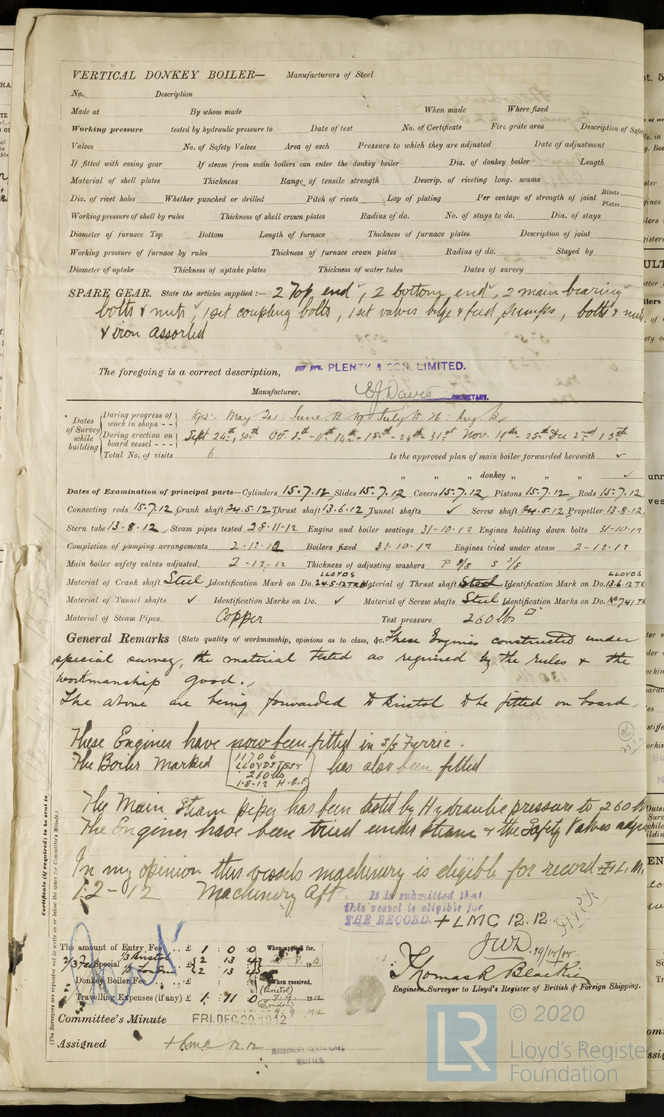 VERTICAL DONKEY BOILER— Manufacturers of Steel
No. Description
Made at By whom made When made Where fixed
Working pressure tested by hydraulic pressure to Date of test No. of Certificate Fire grate area Description of Safety
Valves No. of Safety Valves Area of each Pressure to which they are adjusted Date of adjustment
If fitted with easing gear If steam from main boilers can enter the donkey boiler Dia. of donkey boiler Length
Material of shell plates Thickness Range of tensile strength Descrip. of riveting long. seams
Dia. of rivet holes Whether punched or drilled Pitch of rivets Lap of plating Per centage of strength of joint Rivets Plates
Working pressure of shell by rules Thickness of shell crown plates Radius of do. No. of stays to do. Dia. of stays
Diameter of furnace Top Bottom Length of furnace Thickness of furnace plates Description of joint
Working pressure of furnace by rules Thickness of furnace crown plates Radius of do. Stayed by
Diameter of uptake Thickness of uptake plates Thickness of water tubes Dates of survey
SPARE GEAR. State the articles supplied:— 2 Top end, 2 bottom end, 2 main bearing
bolts & nuts, 1 set coupling bolts, 1 set valves bilge & feed pumps, bolts & nuts
& iron assorted
The foregoing is a correct description,
PLENTY & SON, LIMITED.
Manufacturer. SECRETARY.
Dates of Survey while building
During progress of work in shops - - 1912:- May 24. June 13. 19 July 15. 26. Aug 13
During erection on board vessel - - - Sept 24th, 30th Oct 8th - 11th 14th - 18th - 24th 31st Nov. 19th - 25th Dec 2nd 13th
Total No. of visits 6 Is the approved plan of main boiler forwarded herewith ✓
" " donkey " " " ✓
Dates of Examination of principal parts—Cylinders 15.7.12 Slides 15.7.12 Covers 15.7.12 Pistons 15.7.12 Rods 15.7.12
Connecting rods 15.7.12 Crank shaft 24.5.12 Thrust shaft 13.6.12 Tunnel shafts ✓ Screw shaft 24.5.12 Propeller 13.8.12
Stern tube 13.8.12 Steam pipes tested 28-11-12 Engine and boiler seatings 31-10-12 Engines holding down bolts 31-10-12
Completion of pumping arrangements 2-12-12 Boilers fixed 31.10-12 Engines tried under steam 2-12-12
Main boiler safety valves adjusted 2-12-12 Thickness of adjusting washers P 3/8 S 3/8
Material of Crank shaft Steel Identification Mark on Do. LLOYDS 24.5.12 TRB Material of Thrust shaft Steel Identification Mark on Do. LLOYDS 13.6.12 TR
Material of Tunnel shafts ✓ Identification Marks on Do. ✓ Material of Screw shafts Steel Identification Marks on Do. No 741 TR
Material of Steam Pipes Copper Test pressure 260 lbs
General Remarks (State quality of workmanship, opinions as to class, &c. These Engines constructed under
special survey, the material tested as required by the rules & the
workmanship good.
The above are being forwarded to Bristol to be fitted on board.
These Engines have now been fitted in S/S Fyrric.
The Boiler Marked 11706 LLOYDS TEST 260 lbs 1-8-12 H.G.F has also been fitted
The Main Steam pipes has been tested by Hydraulic pressure to 260 lbs
The Engines have been tried under steam & the Safety Valves
In my opinion this vessels machinery is eligible for record + L.M.
12-12 Machinery Aft.
It is submitted that
this vessel is eligible for
THE RECORD. + LMC 12.12
Certificate (if required) to be sent to
(The Surveyors are requested not to write on or below the space for Committee's Minute.)
The amount of Entry Fee £ 1 : 0 : 0 When applied for,
2/3 Special 1/3 Bristol £ 2 : 13 : 4
Donkey Boiler Fee £ When received,
Travelling Expenses (if any) £ 1 : 11 : 0 (Bristol) (London)
Thomas R Blackie
Engineer Surveyor to Lloyd's Register of British & Foreign Shipping.
Committee's Minute FRI. DEC 20 1912
Assigned + Lmc 12.12
LR © 2020
Lloyd's Register
Foundation